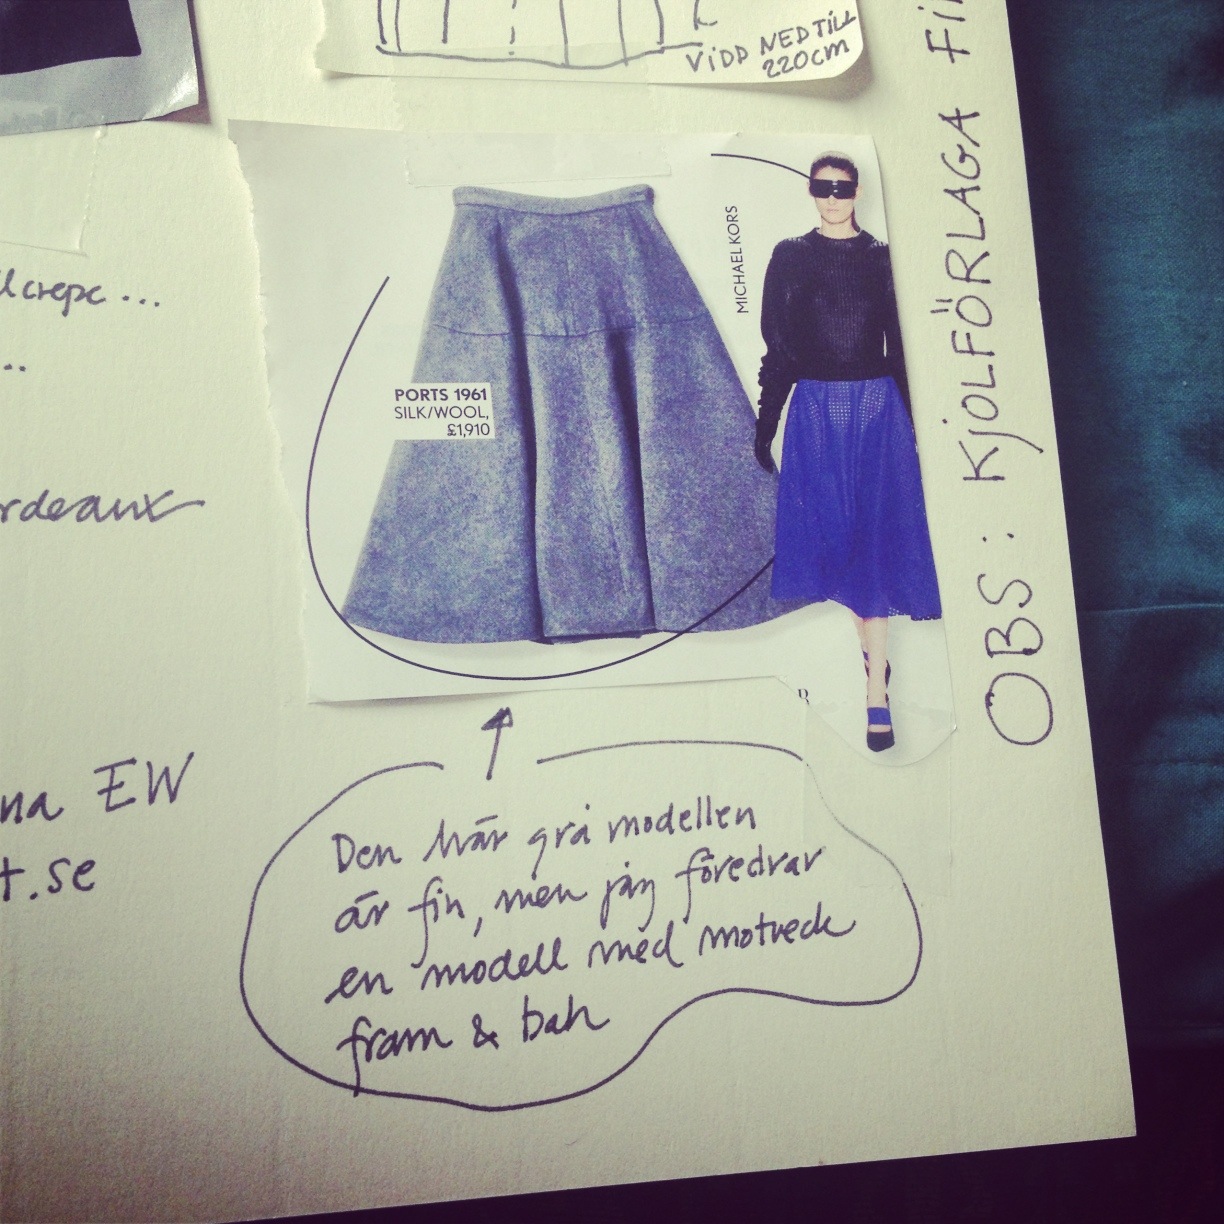 VIDD NED TILL
220CM
MICHAEL KORS
PORTS 1961
SILK/WOOL,
£1,910
crepe ...
...
EW
t.se
Den här grå modellen
är fin, men jag föredrar
en modell med motveck
fram & bak
OBS: KJOLFÖRLAGA